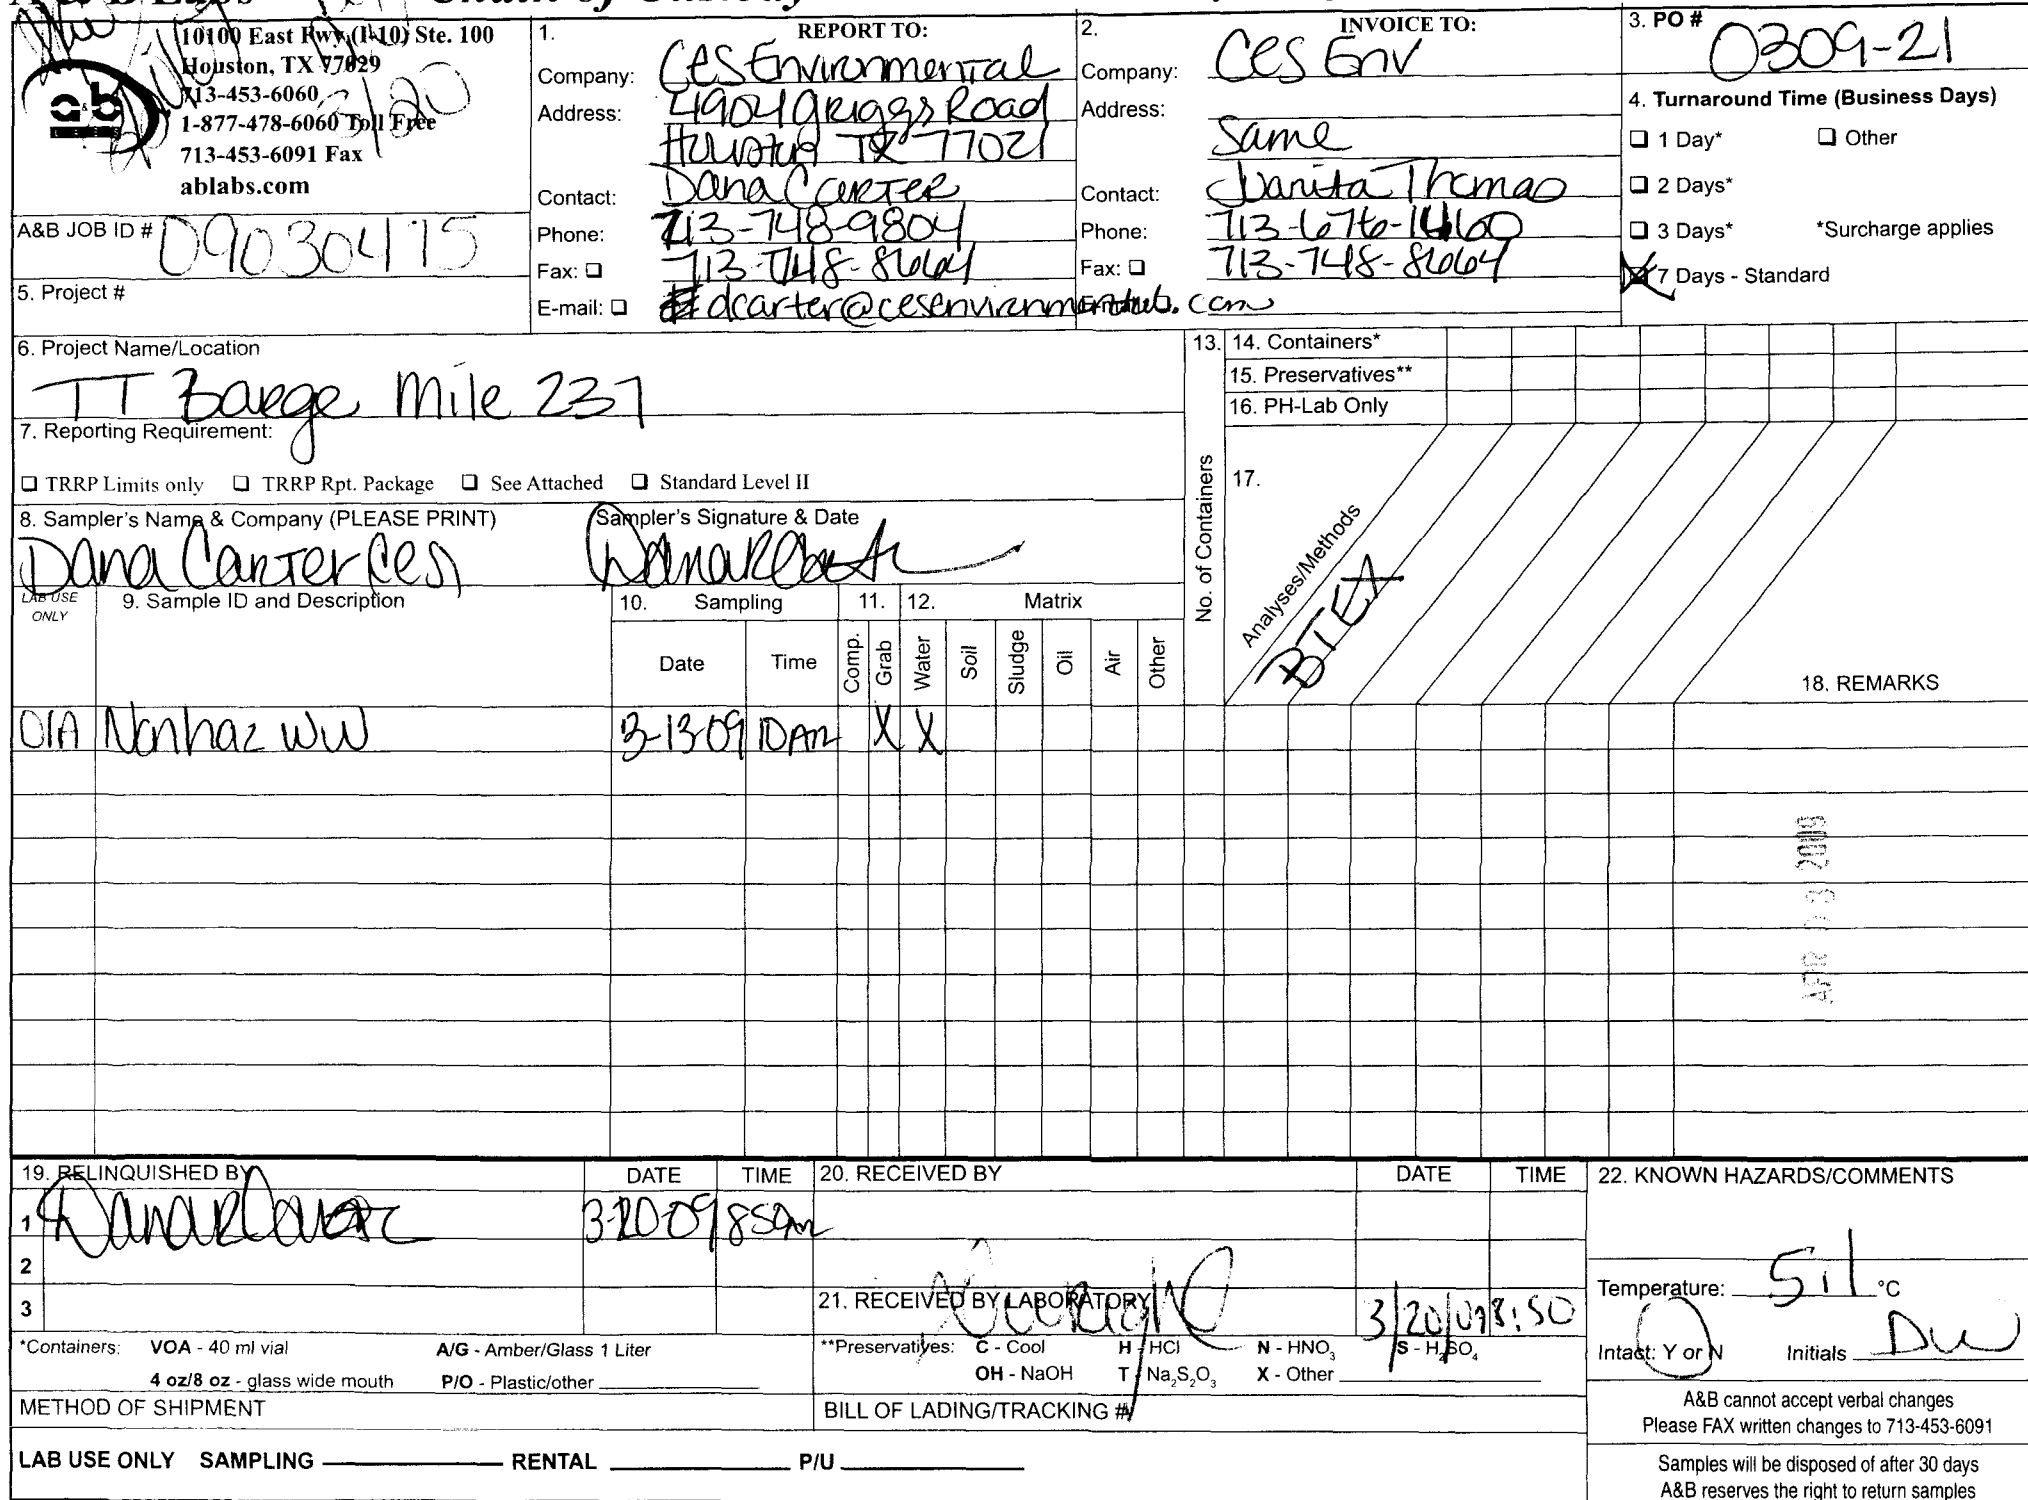 A & B Labs Chain of Custody
10100 East Fwy (I-10) Ste. 100
Houston, TX 77029
713-453-6060
1-877-478-6060 Toll Free
713-453-6091 Fax
ablabs.com
a&b
3/20
A&B JOB ID # 09030475
5. Project #
1. REPORT TO:
Company: CES Environmental
Address: 4904 Griggs Road
Houston TX 77021
Contact: Dana Carter
Phone: 713-748-9804
Fax: ☐ 713-748-8664
E-mail: ☐ dcarter@cesenvironmental.com
2. INVOICE TO:
Company: CES Env
Address:
Same
Contact: Juanita Thomas
Phone: 713-676-1460
Fax: ☐ 713-748-8664
3. PO # 0309-21
4. Turnaround Time (Business Days)
☐ 1 Day* ☐ Other
☐ 2 Days*
☐ 3 Days* *Surcharge applies
☒ 7 Days - Standard
6. Project Name/Location
TT Barge Mile 237
7. Reporting Requirement:
☐ TRRP Limits only ☐ TRRP Rpt. Package ☐ See Attached ☐ Standard Level II
8. Sampler's Name & Company (PLEASE PRINT) Sampler's Signature & Date
Dana Carter CES
13. No. of Containers
14. Containers*
15. Preservatives**
16. PH-Lab Only
17. Analyses/Methods
BTEX
18. REMARKS
LAB USE ONLY
9. Sample ID and Description
10. Sampling 11. 12. Matrix
Date Time Comp. Grab Water Soil Sludge Oil Air Other
01A Nonhaz WW 3-13-09 10AM X X
APR 03 2009
19. RELINQUISHED BY DATE TIME 20. RECEIVED BY DATE TIME
1 3-20-09 850am
2
3
21. RECEIVED BY LABORATORY 3/20/09 8:50
22. KNOWN HAZARDS/COMMENTS
Temperature: 5.1 °C
Intact: Y or N Initials DW
*Containers: VOA - 40 ml vial A/G - Amber/Glass 1 Liter
4 oz/8 oz - glass wide mouth P/O - Plastic/other
**Preservatives: C - Cool H - HCl N - HNO3 S - H2SO4
OH - NaOH T - Na2S2O3 X - Other
METHOD OF SHIPMENT BILL OF LADING/TRACKING #
A&B cannot accept verbal changes
Please FAX written changes to 713-453-6091
LAB USE ONLY SAMPLING RENTAL P/U
Samples will be disposed of after 30 days
A&B reserves the right to return samples